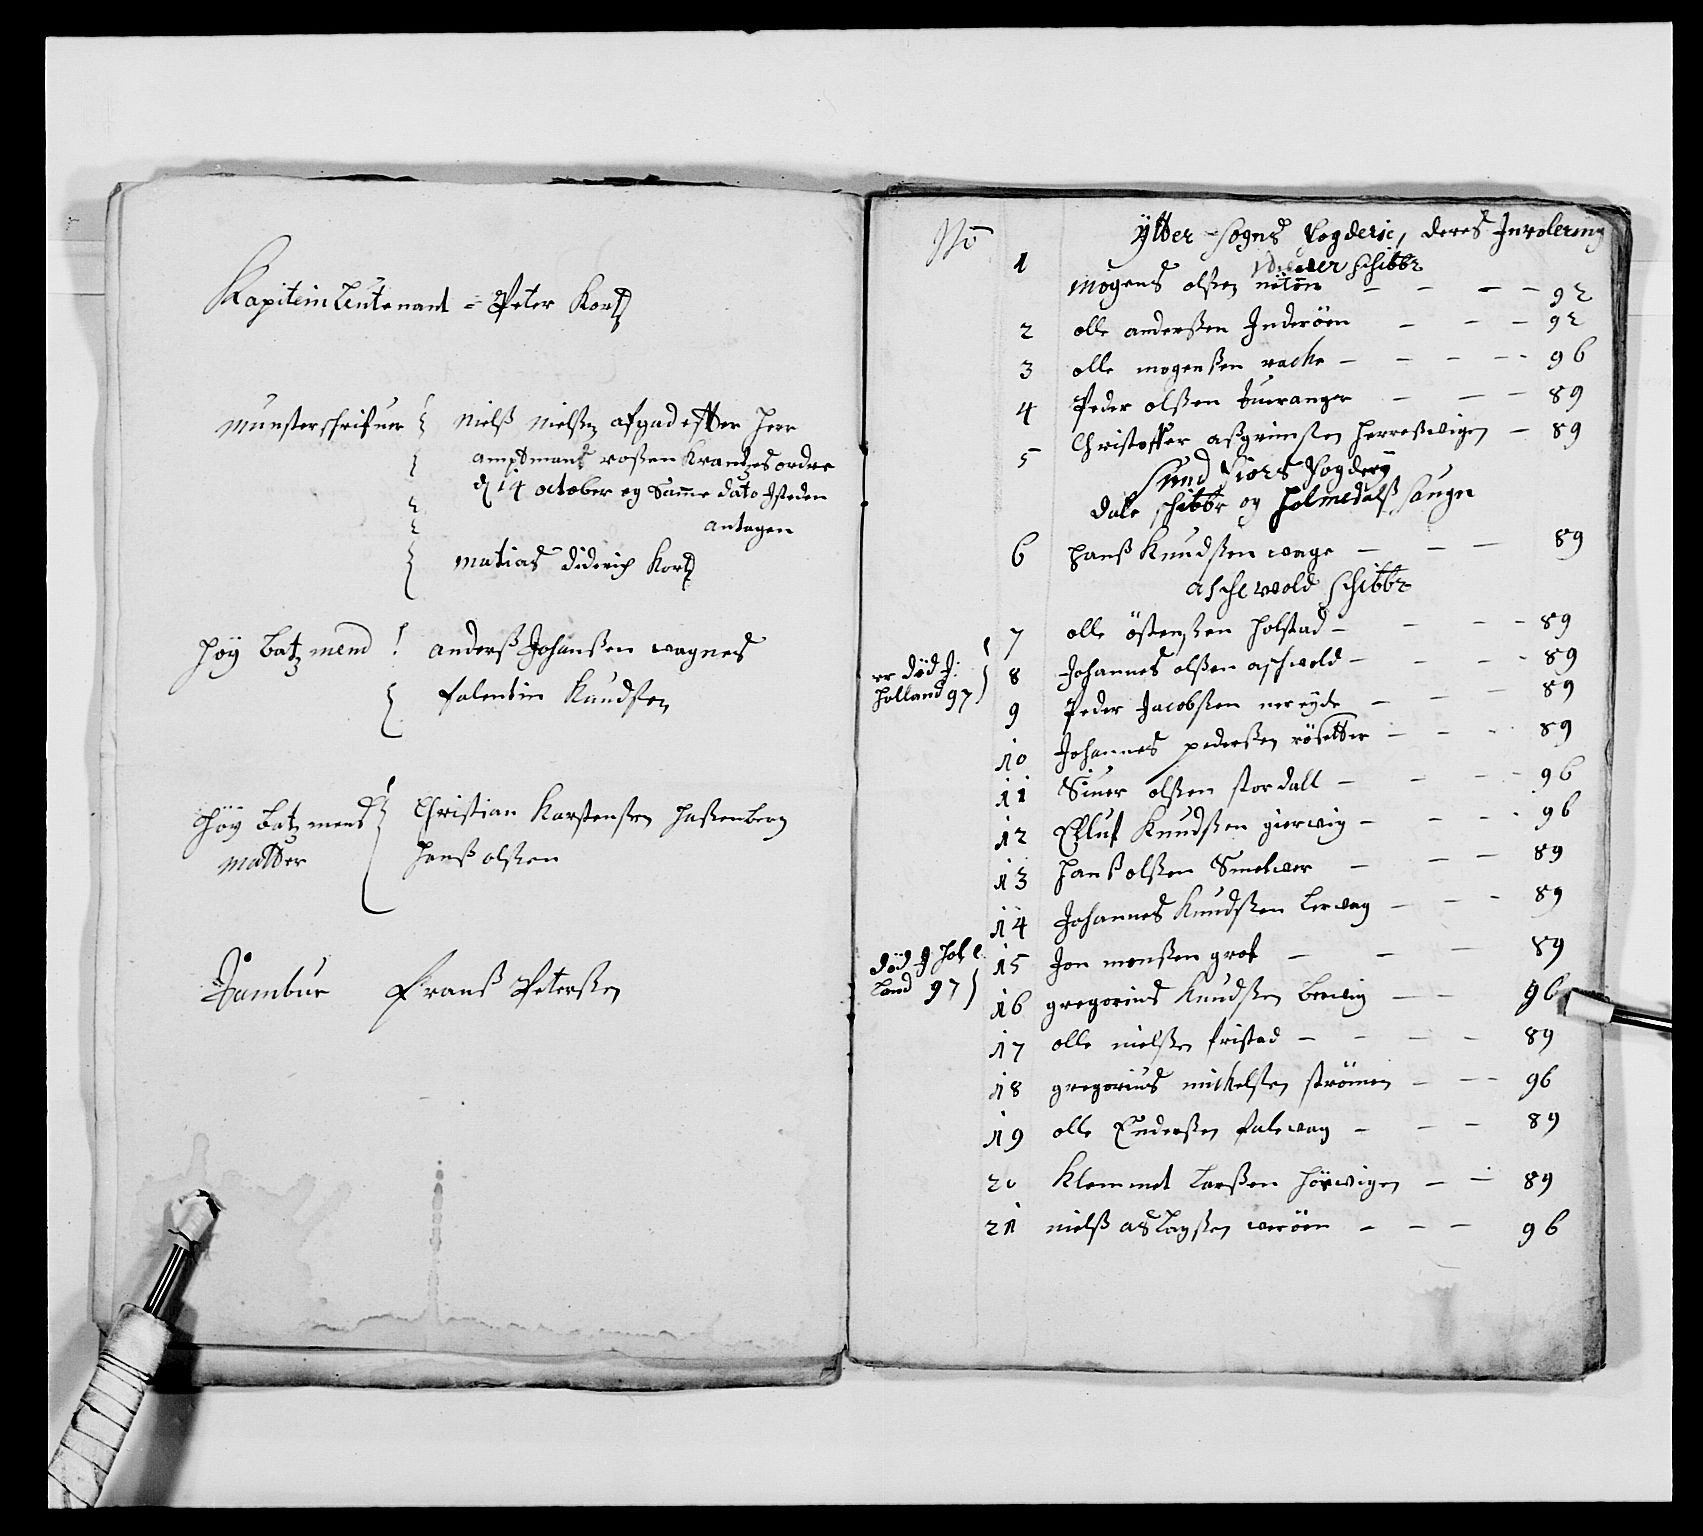 Kapitein Leutenant = Peter Kortz
Munsterschrifuer { Nielß Nielßen afgad efter Herr
amptmans roßen Krantzes ordre
d 14 october og Samme dato Isteden
antagen
matias Diderich Kortz
Høy Batzmend { anderß Johanßen wagnes
falentin Knudsen
Høy Batzmends { Christian Karstensen Haßenberg
matter Hanß olßen
Tambur Franß Peterßen
No Ytter Sogns Fogderie, deres Inrolering
schibbr
1 Mogens olßen - - - - 92
2 olle anderßen Inderöen - - - 92
3 olle mogenßen racke - - - - 96
4 Peder olßen tueranger - - - 89
5 Christoffer aßgrimsen Herreßwigen - 89
Sund Fiors Fogdery
Dale schibbr og Holmedalß Saugn
6 Hanß Knudßen wage - - - 89
aschewold schibbr
7 olle östenßen Holstad - - - - 89
er død J: Holland 97) 8 Johannes olßen aschwold - - - - 89
9 Peder Jacobßen nereyde - - - 89
10 Johannes pederßen rösetter - - - 89
11 Siuer olßen stordall - - - - 96
12 Elluf Knudßen gierwig - - - - 96
13 Hanß olßen Smelwer - - - 89
14 Johannes Knudßen Lerwag - - - 89
død J Hol land 97) 15 Jon monßen grof - - - 89
16 gregorius Knudßen Berwig - - 96
17 olle nielßen fristad - - - - 89
18 gregorius mickelsen strömen - - - 96
19 olle Enderßen falewag - - - 89
20 Klemmet Larßen Hörwigen - - 89
21 nielß aslagßen weröen - - - 96